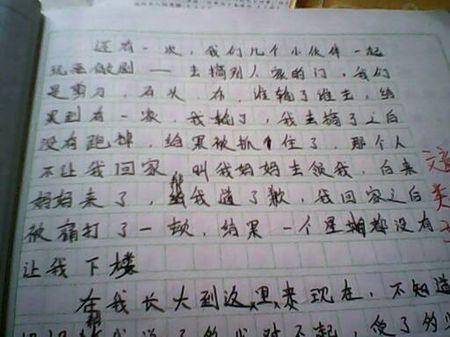 还有一次，我们几个小伙伴一起
玩恶做剧——去搞别人家的门，我们
是剪刀，石头，布，谁输了谁去，结
果到有一次，我输了，我去搞了之后
没有跑掉，结果被抓住了，那个人
不让我回家，叫我妈妈去领我，后来
妈妈来了，帮我道了歉，我回家之后
被痛打了一顿，结果一个星期都没有
让我下楼
在我长大到现在，不知道
我道了的对不起，